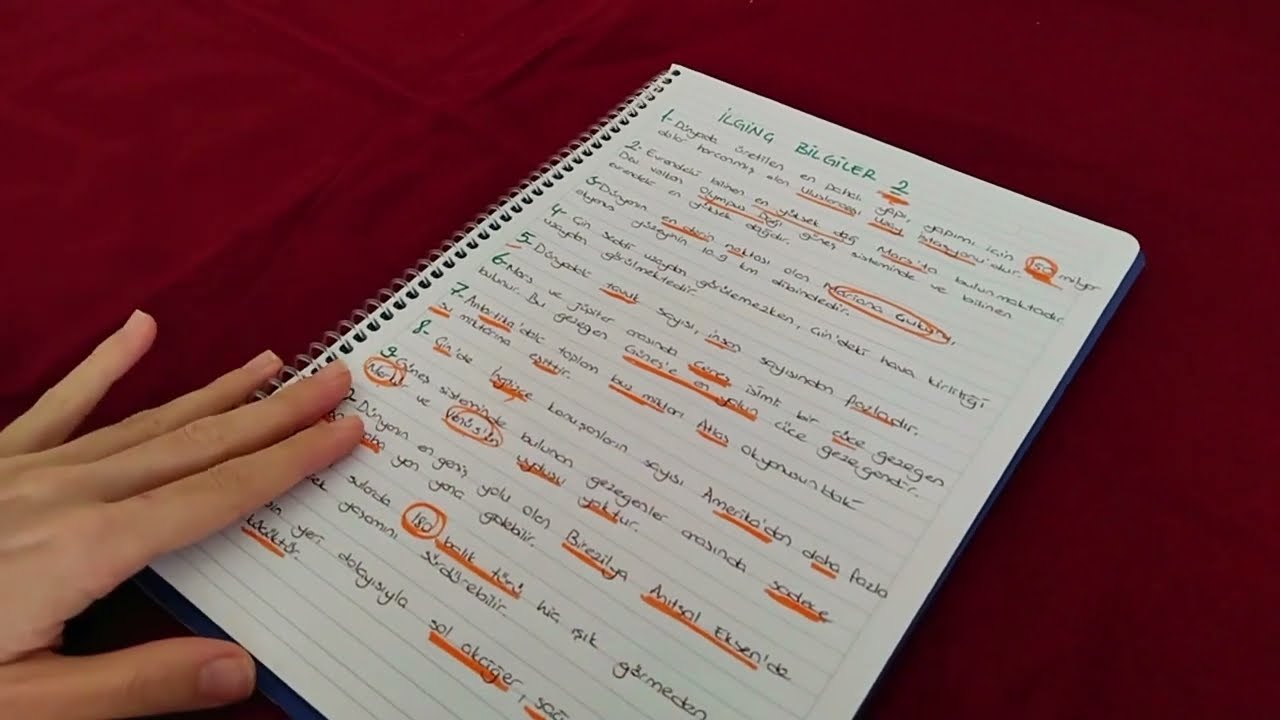 İLGİNÇ BİLGİLER 2
1- Dünyada üretilen en pahalı yapı, yapımı için 150 milyar
dolar harcanmış olan Uluslararası Uzay İstasyonu'dur.
2- Evrendeki bilinen en yüksek dağ Mars'ta bulunmaktadır.
Dev volkan Olympus Dağı güneş sisteminde ve bilinen
evrendeki en yüksek dağıdır.
3- Dünyanın en derin noktası olan Mariana Çukuru,
okyanus yüzeyinin 10.9 km dibindedir.
4- Çin Seddi uzaydan görülemezken, Çin'deki hava kirliliği
uzaydan görülmektedir.
5- Dünyadaki tavuk sayısı, insan sayısından fazladır.
6- Mars ve Jüpiter arasında Ceres isimli bir cüce gezegen
bulunur. Bu gezegen Güneş'e en yakın cüce gezegendir.
7- Antartika'daki toplam buz miktarı Atlas okyonusundaki
su miktarına eşittir.
8- Çin'de İngilizce konuşanların sayısı Amerika'dan daha fazla
9- Güneş sisteminde bulunan gezegenler arasında sadece
ve Venüs'ün uydusu yoktur.
Dünyanın en geniş yolu olan Birezilya Anıtsal Eksen'de
yan yana gidebilir.
sularda 180 balık türü hiç ışık görmeden
yaşamını sürdürebilir.
yeri dolayısıyla sol akciğer, sağ
küçüktür.